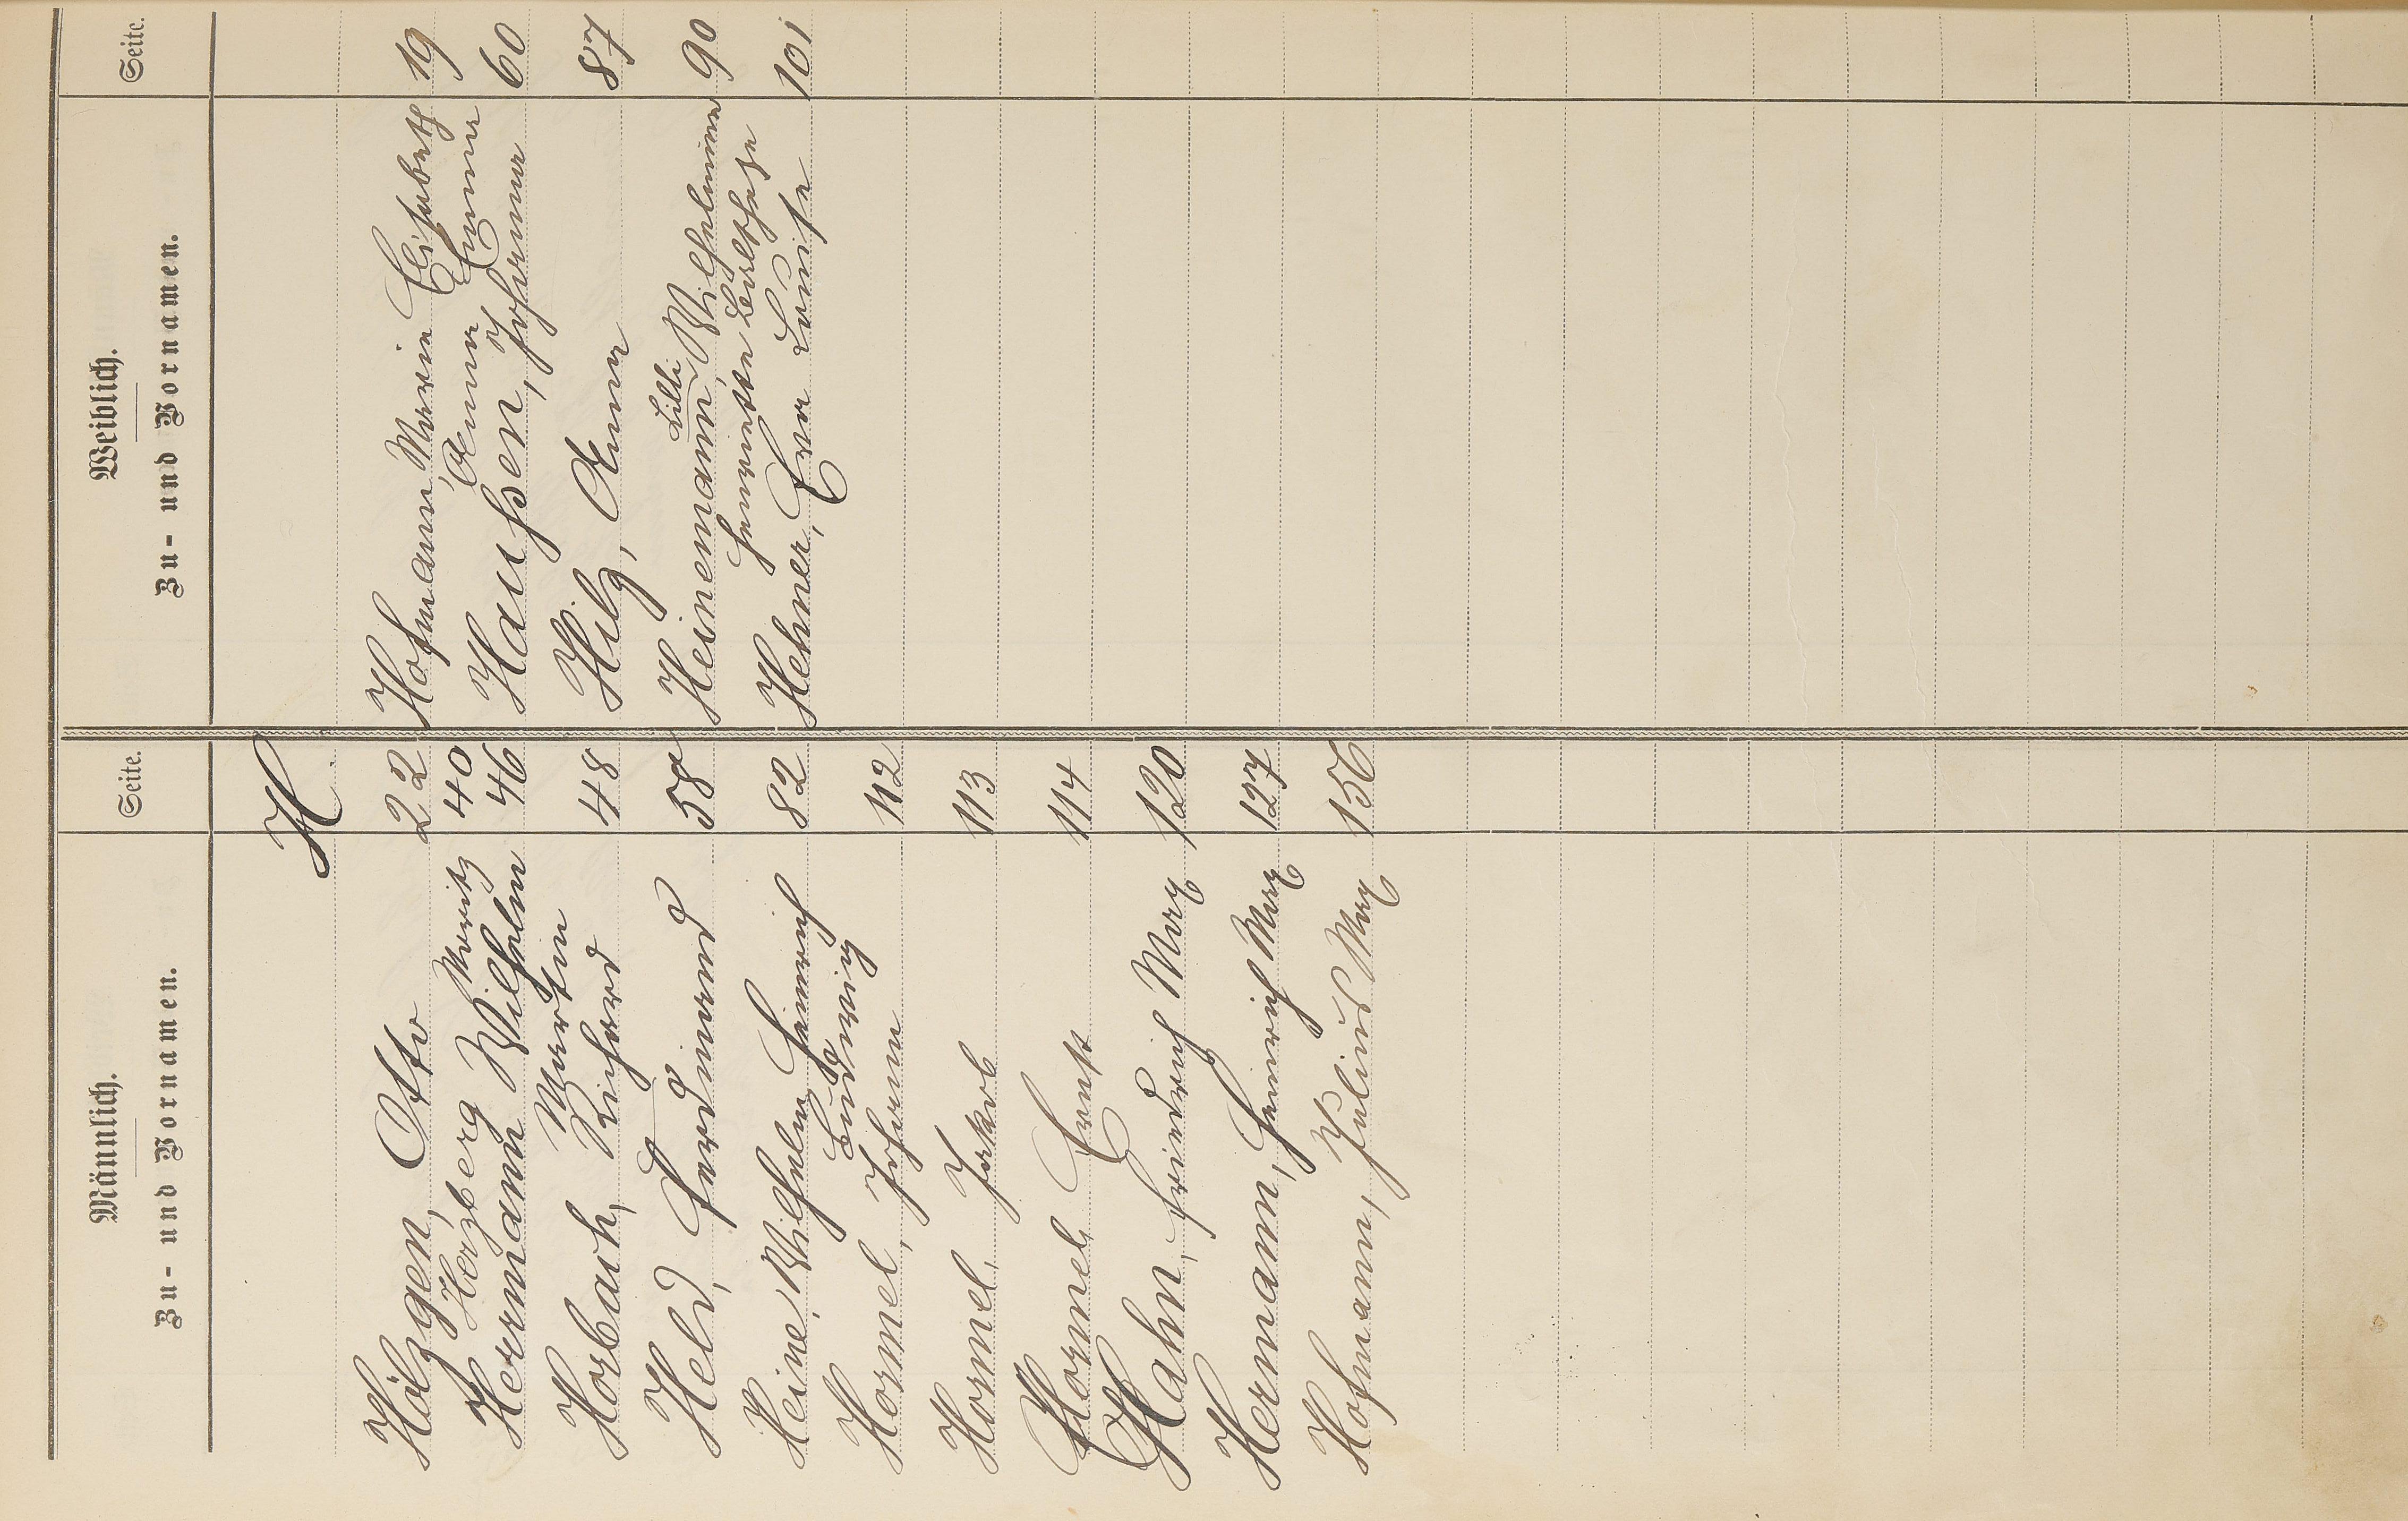 Männlich.
Zu- und Vornamen.
Seite.
Weiblich.
Zu- und Vornamen.
Seite.
H
Hölzgen, Otto 22
Herzberg Moritz 40
Herrmann Wilhelm 46
Martin
Horbach, Richard 48
Held, Ferdinand 58
Heine, Wilhelm Heinrich 82
Ludwig
Hormel, Johann 112
Hormel, Jakob 113
Hormel, Ernst 114
Hahn, Friedrich Max 120
Hermann, Heinrich Max 127
Hofmann, Julius Max 156
Hofmann, Marie Elisabeth 19
Anna Emma
Haußen, Johanna 60
Hilg, Anna 87
Lilli
Heinemann, Wilhelmine 90
Henriette Berthe
Hehner, Eva Luise 101